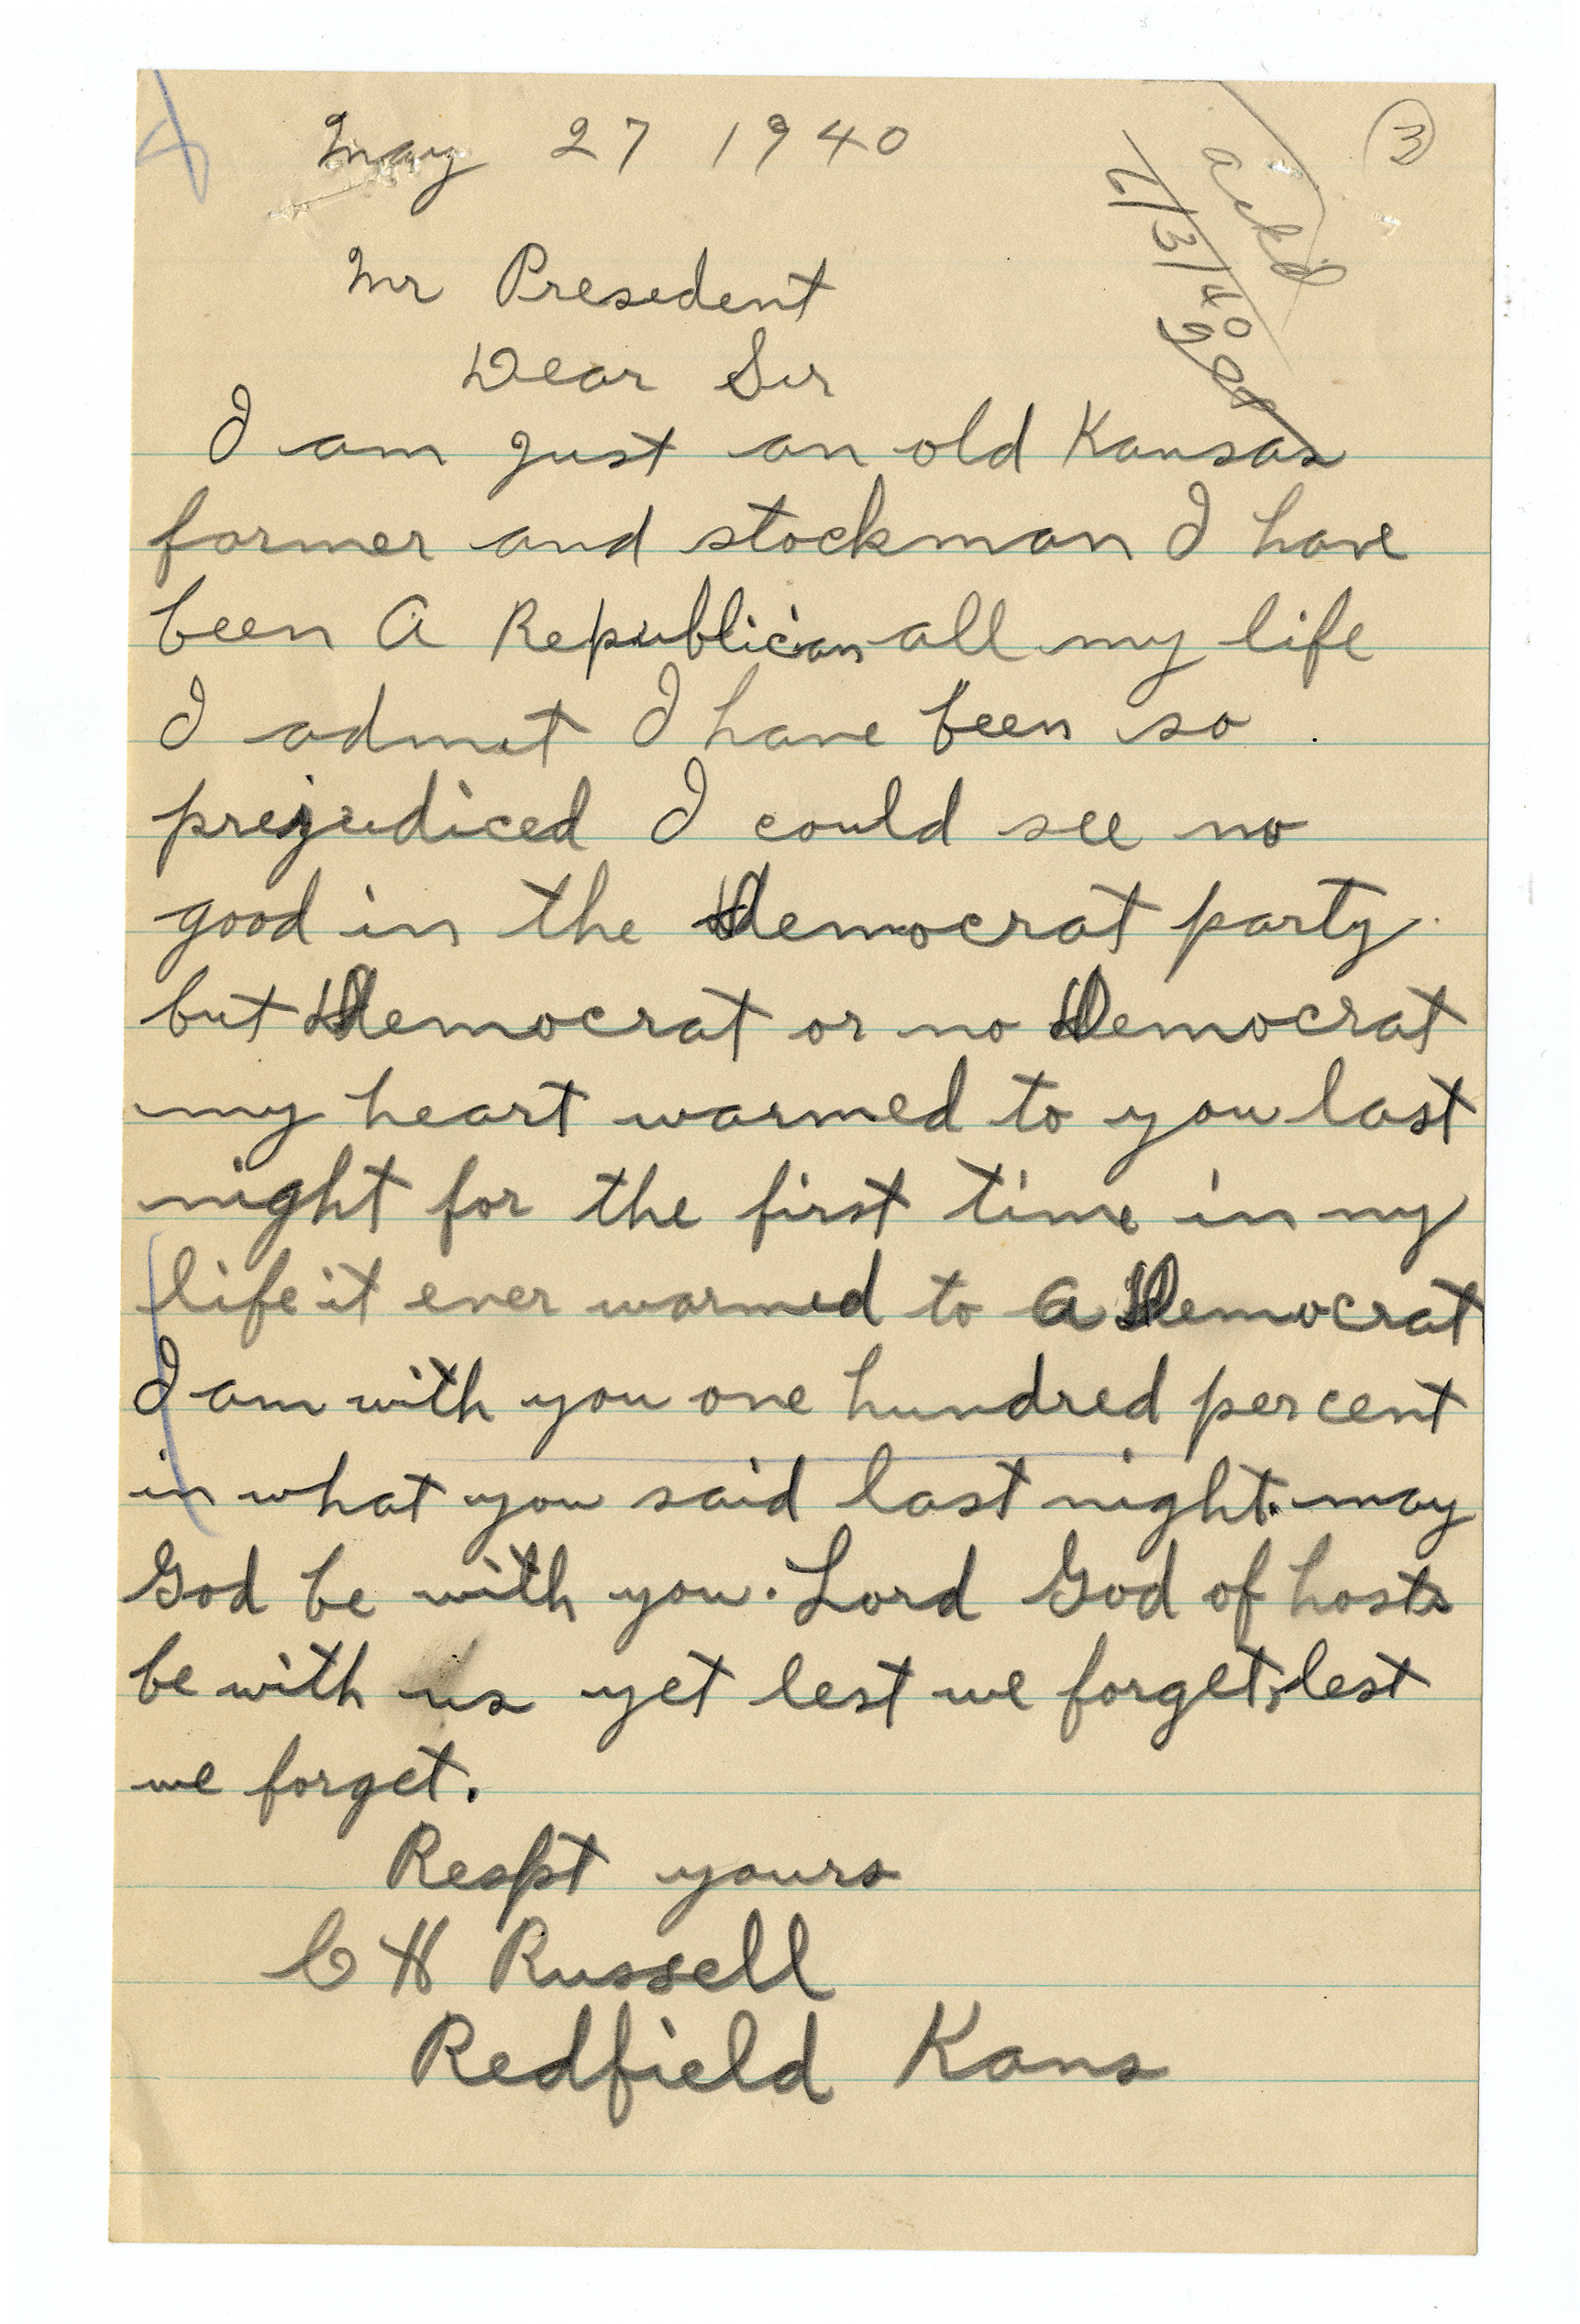 May 27 1940
3
ackd
6/3/40
Mr Presedent
Dear Sir
I am just an old Kansas
farmer and stockman I have
been A Republican all my life
I admit I have been so
prejudiced I could see no
good in the Democrat party.
but Democrat or no Democrat
my heart warmed to you last
night for the first time in my
life it ever warmed to a Democrat
I am with you one hundred percent
in what you said last night. may
God be with you. Lord God of hosts
be with us yet lest we forget, lest
we forget.
Respt yours
C H Russell
Redfield Kans